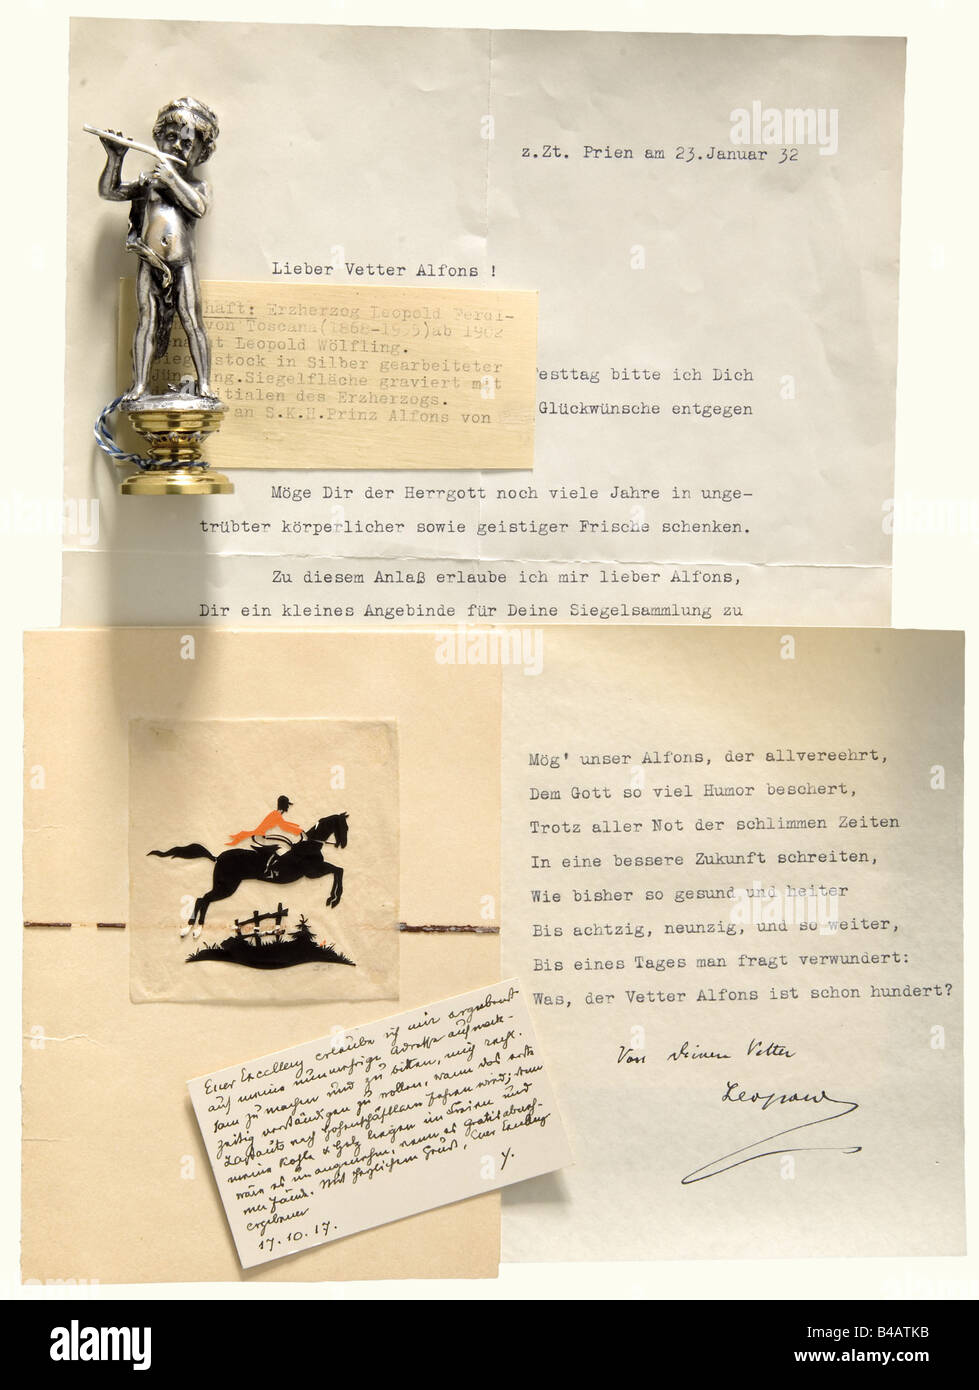 z.Zt. Prien am 23.Januar 32
Lieber Vetter Alfons !
haft: Erzherzog Leopold Ferdi-
von Toscana(1868-1935)ab 1902
Leopold Wölfling.
stock in Silber gearbeiteter
ng.Siegelfläche graviert mit
itialen des Erzherzogs.
an S.K.H.Prinz Alfons von
Festtag bitte ich Dich
Glückwünsche entgegen
Möge Dir der Herrgott noch viele Jahre in unge-
trübter körperlicher sowie geistiger Frische schenken.
Zu diesem Anlaß erlaube ich mir lieber Alfons,
Dir ein kleines Angebinde für Deine Siegelsammlung zu
Mög' unser Alfons, der allvereehrt,
Dem Gott so viel Humor beschert,
Trotz aller Not der schlimmen Zeiten
In eine bessere Zukunft schreiten,
Wie bisher so gesund und heiter
Bis achtzig, neunzig, und so weiter,
Bis eines Tages man fragt verwundert:
Was, der Vetter Alfons ist schon hundert?
Von Deinem Vetter
Leopold
Euer Excellenz erlaube ich mir ergebenst
auf meine nunmehrige Adresse aufmerk-
sam zu machen und zu bitten, mich recht-
zeitig verständigen zu wollen, wann das erste
Lastauto nach
meine Kohle & Holz liegen im Freien und
wäre es unangenehm, wenn es
Mit herzlichem Gruß, Euer Excellenz
ergebener
17.10.17.
alamy
Image ID: B4ATKB
www.alamy.com